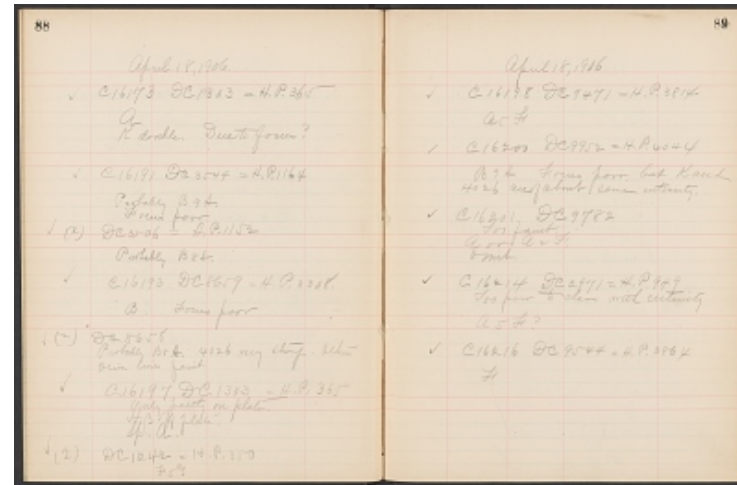 88
April 18, 1906.
C 16173 DC 1303 = H.P. 365
A
K double. Due to focus?
C 16191 DC 3544 = H.P. 1164
Probably B 9 A.
Focus poor
(2) DC 3506 = H.P. 1152
Probably B 8 A.
C 16193 DC 8659 = H.P. 3308
B Focus poor
(2) DC 8658
Probably B 8 A. 4026 very strong. Other
lines faint
C 16197 DC 1303 = H.P. 365
Only partly on plate.
Sp. A.
(2) DC 1242 = H.P. 350
F 5 G
89
April 18, 1906
C 16198 DC 9471 = H.P. 3814
A 5 F
C 16200 DC 9952 = H.P. 4044
B 9 A Focus poor, but K and
4026 are about same intensity.
C 16201 DC 9782
Too faint.
A or A 2 F.
Omit
C 16214 DC 2971 = H.P. 989
Too poor to class with certainty
A 5 F?
C 16216 DC 9544 = H.P. 3864
F